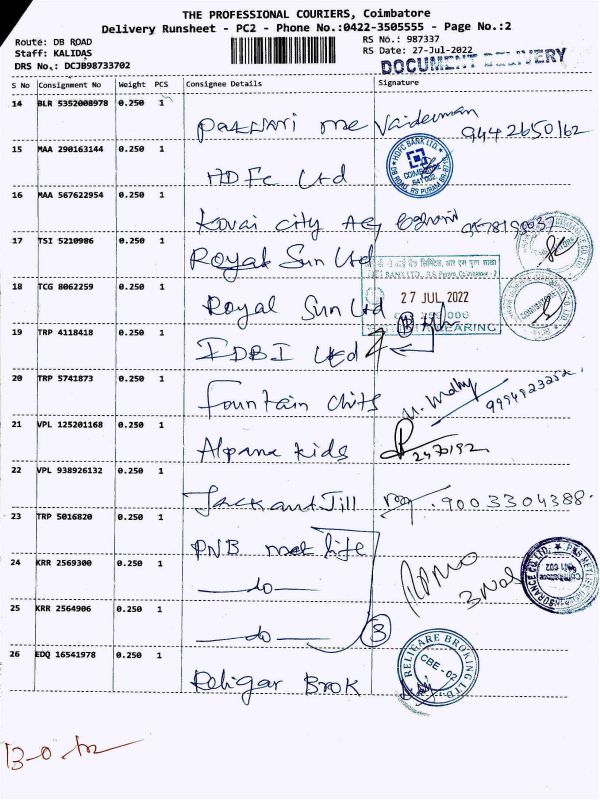 THE PROFESSIONAL COURIERS, Coimbatore
Delivery Runsheet - PC2 - Phone No.:0422-3505555 - Page No.:2
Route: DB ROAD
RS No.: 987337
Staff: KALIDAS
RS Date: 27-Jul-2022
DRS No.: DCJB98733702
DOCUMENT DELIVERY
S No Consignment No Weight PCS Consignee Details Signature
14 BLR 5352008978 0.250 1
9442650162
15 MAA 290163144 0.250 1 HDFC Ltd
HDFC BANK LTD.
16 MAA 567622954 0.250 1 Kovai City
17 TSI 5210986 0.250 1 Royal Sun Ltd
18 TCG 8062259 0.250 1 Royal Sun Ltd
27 JUL 2022
CLEARING
19 TRP 4118418 0.250 1 IDBI Ltd
20 TRP 5741873 0.250 1 Fountain chits
21 VPL 125201168 0.250 1 Alpana kids
2470192
22 VPL 938926132 0.250 1 Jack and Jill 9003304388
23 TRP 5016820 0.250 1 PNB met life
24 KRR 2569300 0.250 1 -do-
3 Nos
25 KRR 2564906 0.250 1 -do- 3
26 EDQ 16541978 0.250 1 Religar Brok
RELIGARE BROKING LTD.
CBE - 02